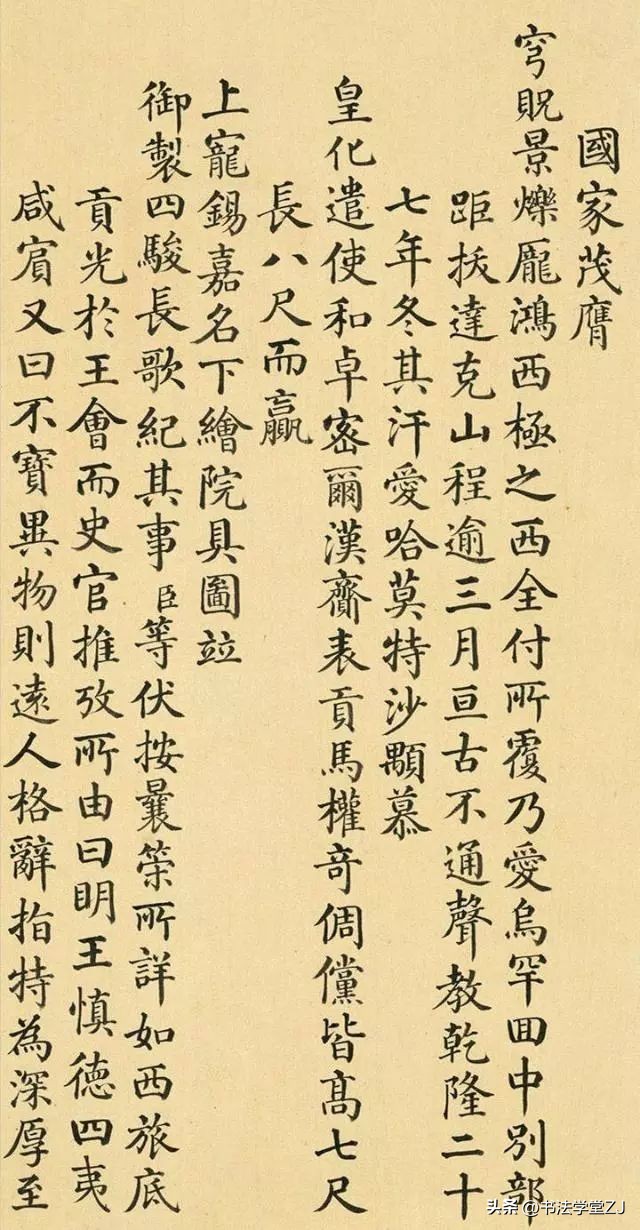 國家茂膺
穹貺景爍龎鴻西極之西全付所覆乃愛烏罕囬中別部
距拔達克山程逾三月亘古不通聲教乾隆二十
七年冬其汗愛哈莫特沙顒慕
皇化遣使和卓密爾漢齎表貢馬權奇倜儻皆髙七尺
長八尺而贏
上寵錫嘉名下繪院具圖竝
御製四駿長歌紀其事臣等伏按曩筞所詳如西旅底
貢光於王會而史官推攷所由曰明王慎德四夷
咸賓又曰不寶異物則遠人格辭指特為深厚至
头条 @书法学堂ZJ